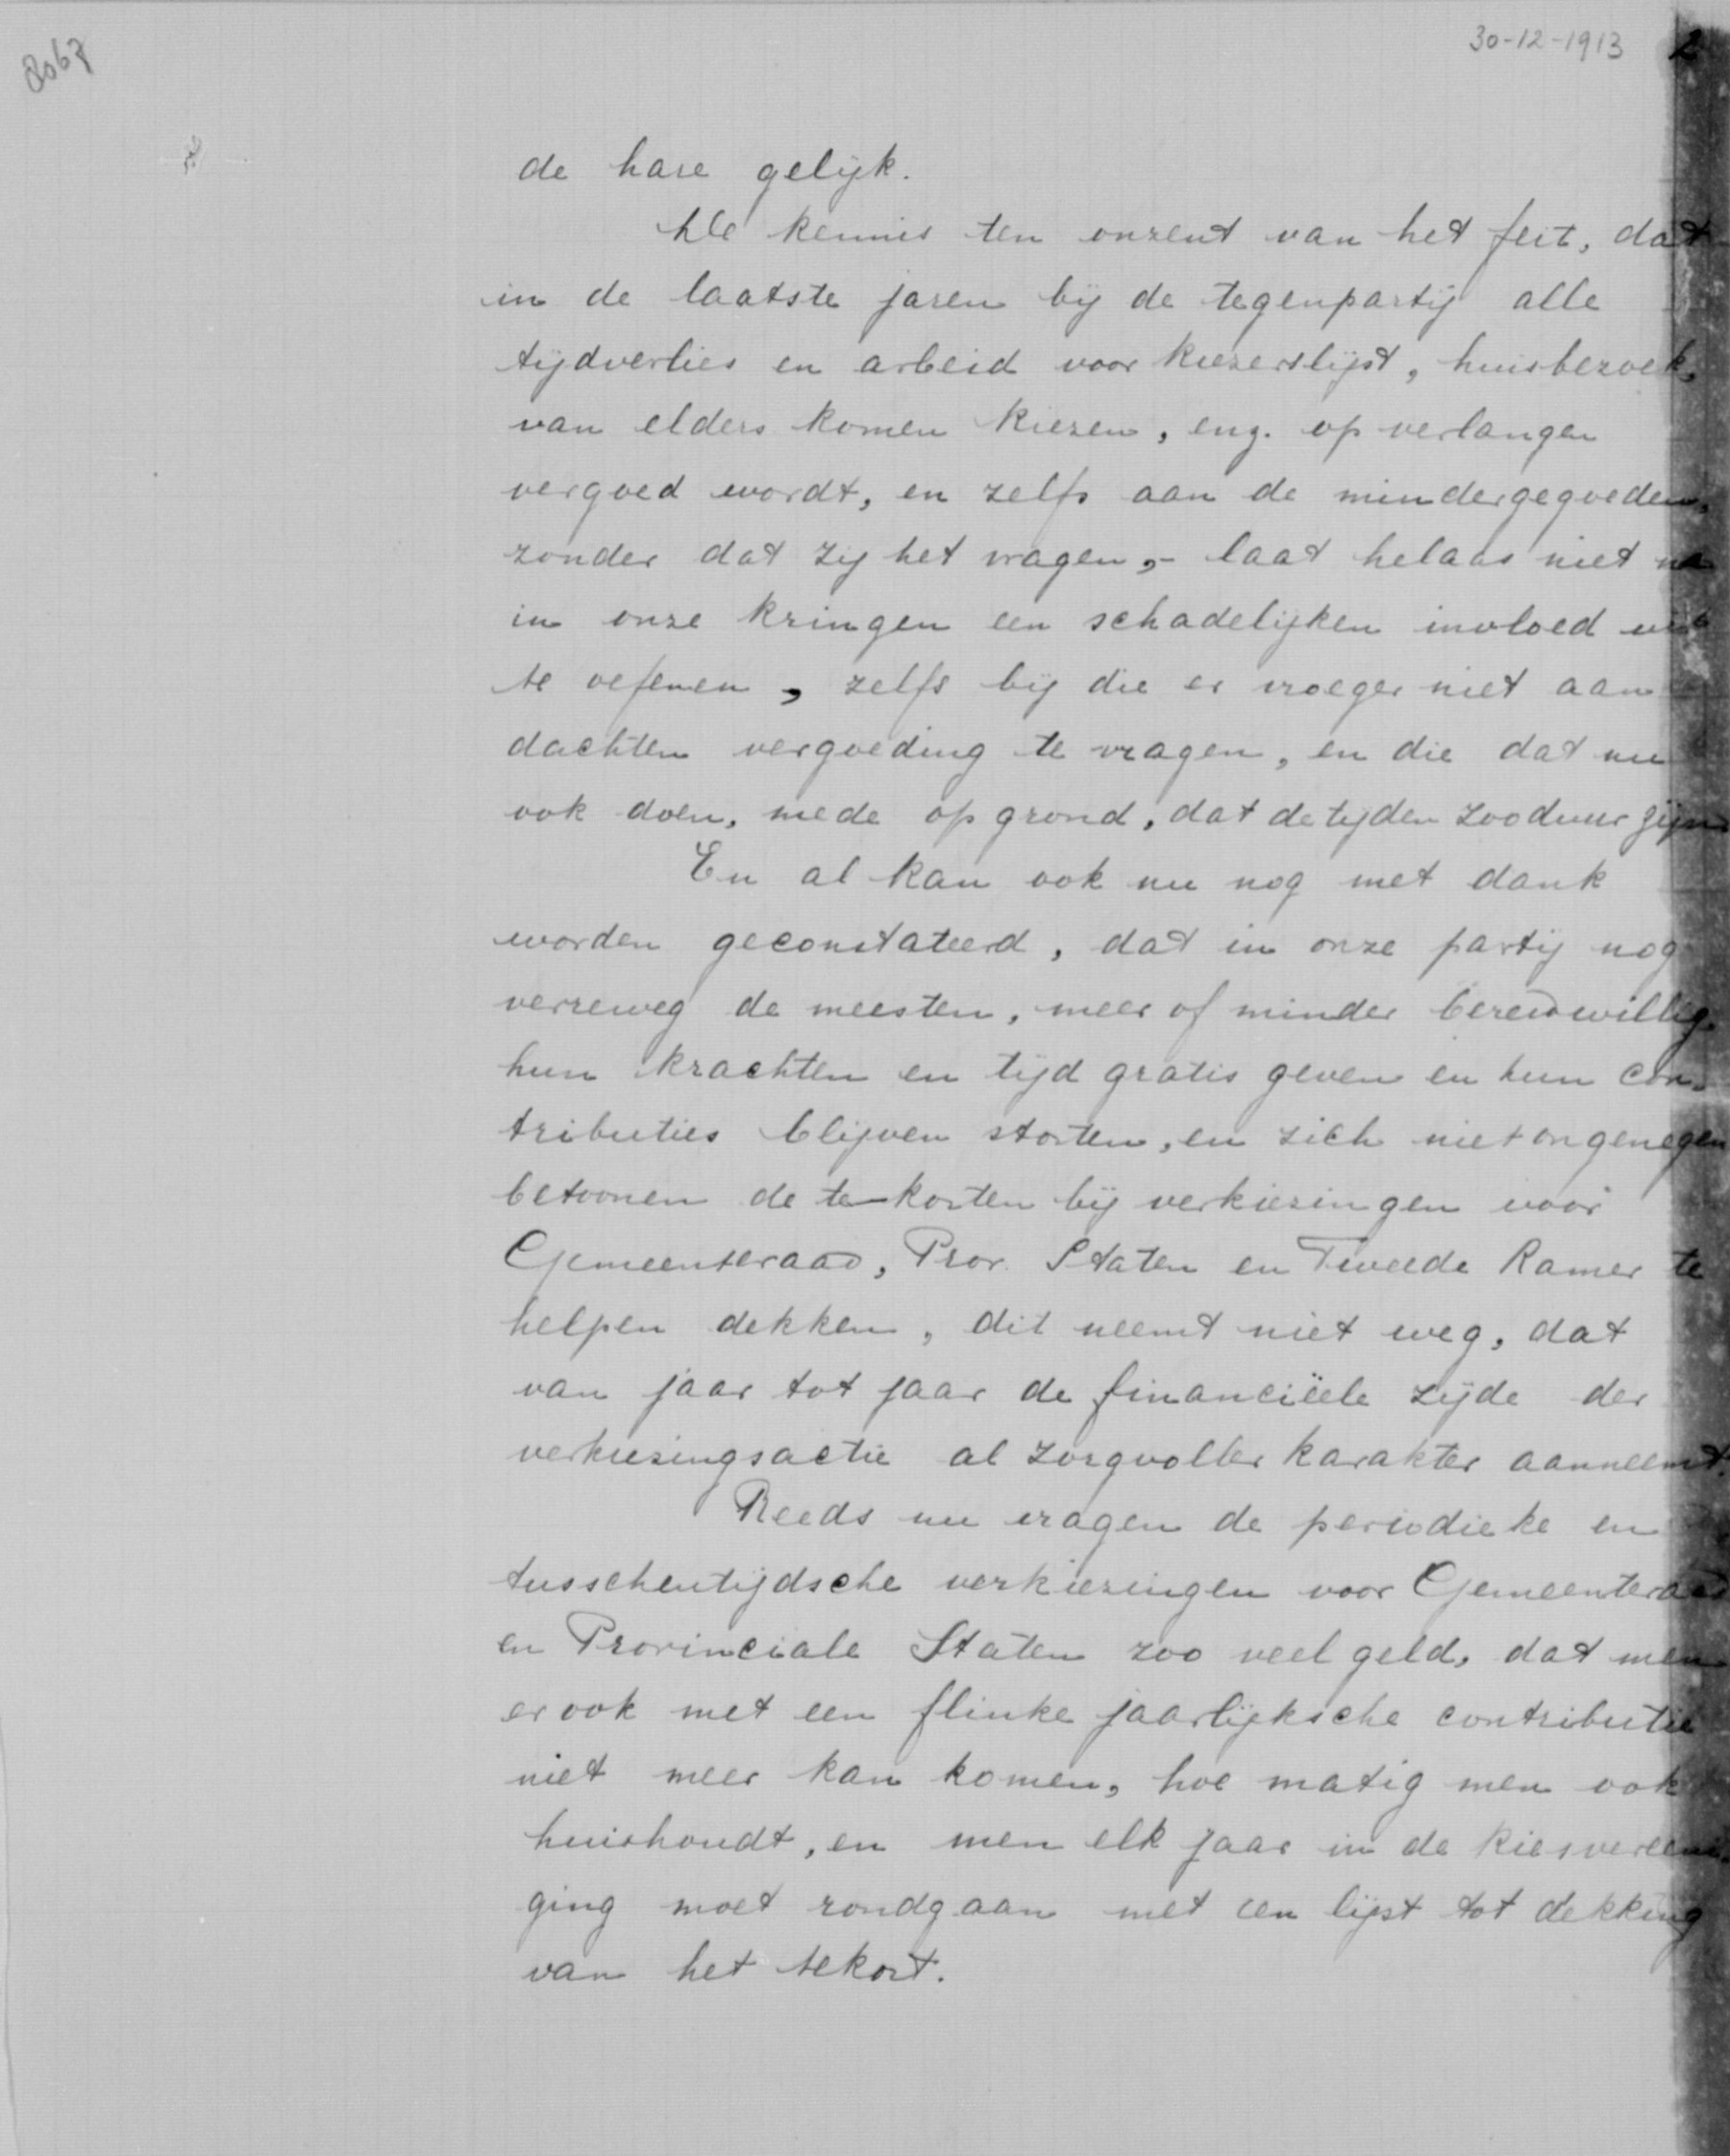 30-12-1913 2
8067
de hare gelijk.
De kennis ten onzent van het feit, dat
in de laatste jaren bij de tegenpartij alle
tijdverlies en arbeid voor kiezerslijst, huisbezoek,
van elders komen kiezen, enz. op verlangen
vergoed wordt, en zelfs aan de mindergegoeden,
zonder dat zij het vragen,- laat helaas niet na
in onze kringen een schadelijken invloed uit
te oefenen, zelfs bij die er vroeger niet aan
dachten vergoeding te vragen, en die dat nu
ook doen, mede op grond, dat de tijden zoo duur zijn
En al kan ook nu nog met dank
worden geconstateerd, dat in onze partij nog
verreweg de meesten, meer of minder bereidwillig,
hun krachten en tijd gratis geven en hun con-
tributies blijven storten, en zich niet ongenegen
betoonen de te-korten bij verkiezingen voor
Gemeenteraad, Prov. Staten en Tweede Kamer te
helpen dekken, dit neemt niet weg, dat
van jaar tot jaar de financiëele zijde der
verkiezingsactie al zorgvoller karakter aanneemt.
Reeds nu vragen de periodieke en
tusschentijdsche verkiezingen voor Gemeenteraad
en Provinciale Staten zoo veel geld, dat men
er ook met een flinke jaarlijksche contributie
niet meer kan komen, hoe matig men ook
huishoudt, en men elk jaar in de kiesvereeni-
ging moet rondgaan met een lijst tot dekking
van het tekort.